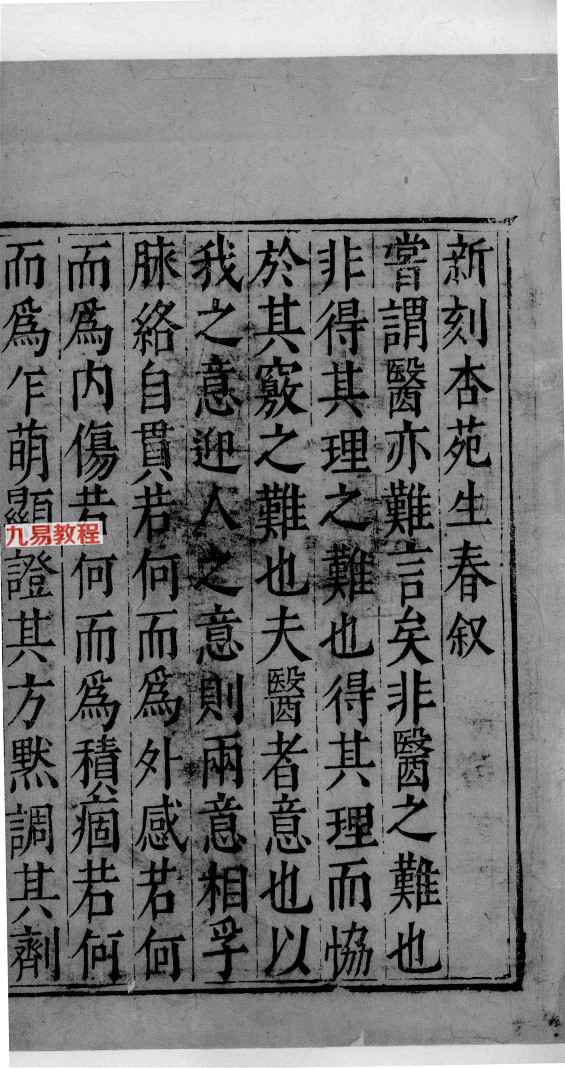 新刻杏苑生春叙
嘗謂醫亦難言矣非醫之難也
非得其理之難也得其理而恊
於其竅之難也夫醫者意也以
我之意迎人之意則兩意相孚
脉絡自貫若何而為外感若何
而為内傷若何而為積痼若何
而為乍萌顯證其方黙調其劑
九易教程